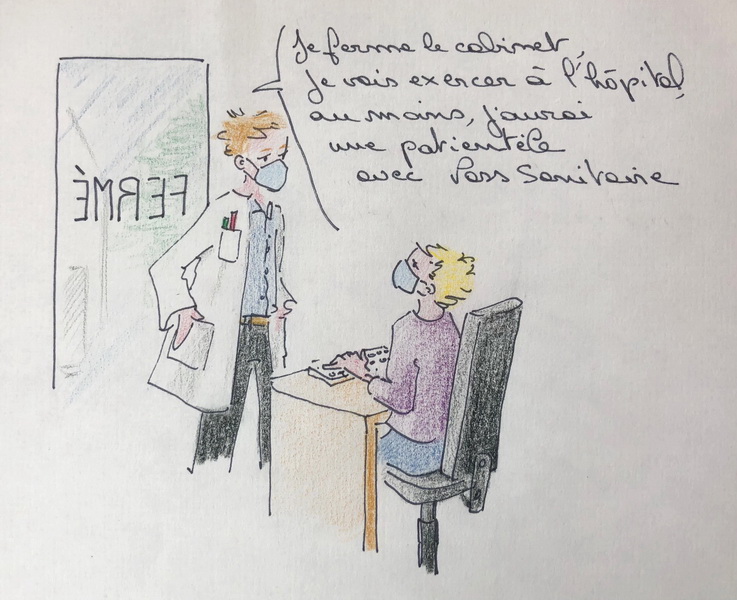 Je ferme le cabinet,
je vais exercer à l'hôpital,
au moins, j'aurai
une patientèle
avec Pass Sanitaire
FERMÉ